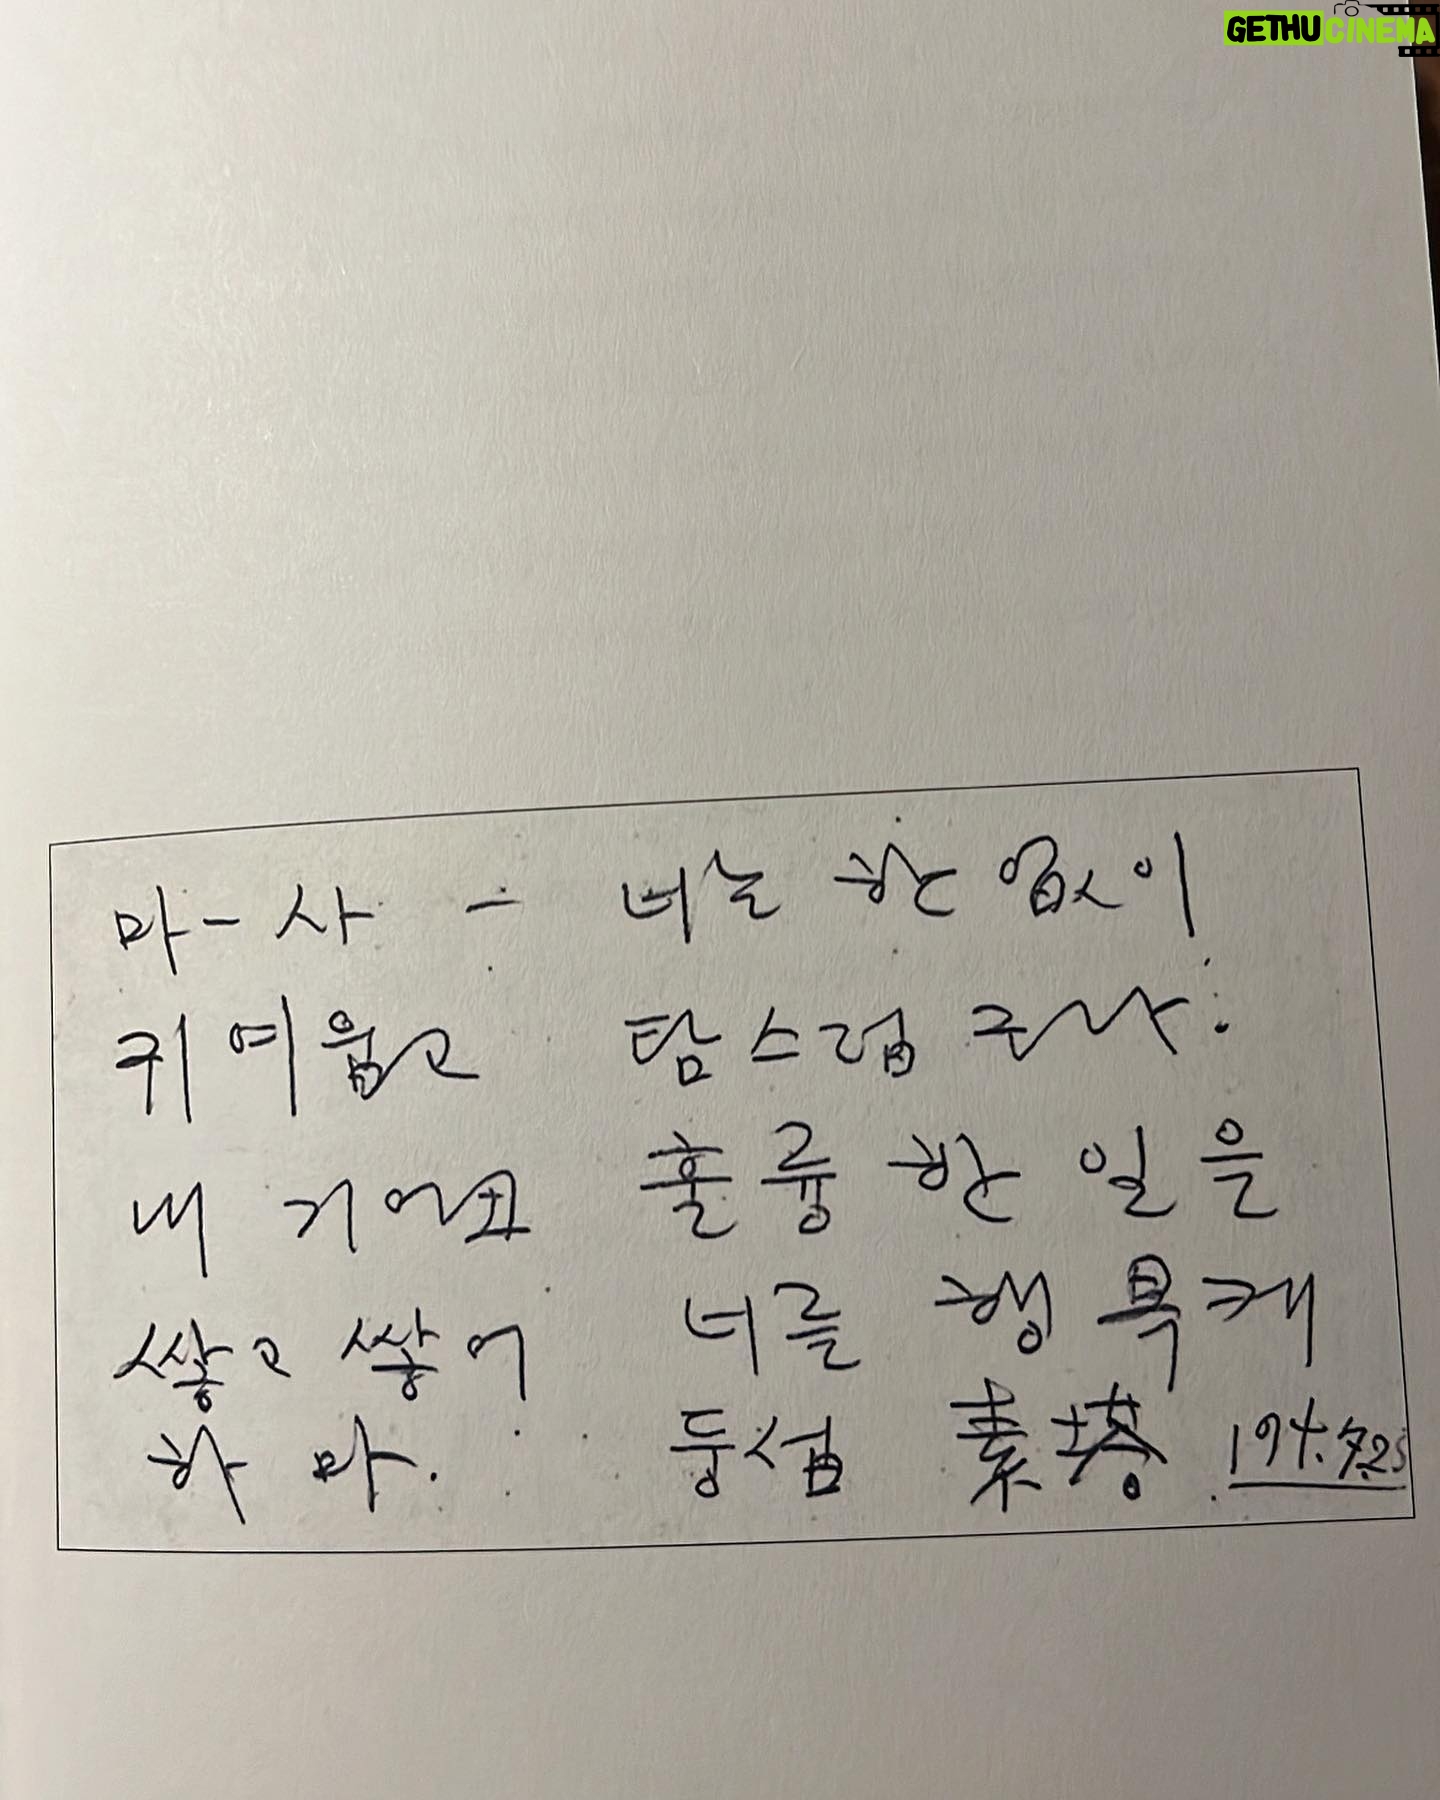 GETHU CINEMA
마-사 - 너는 한없이
귀여웁고 탐스럽구나.
내 기어코 훌륭한 일을
쌓고 쌓어 너를 행복케
하마. 둥섭 素塔